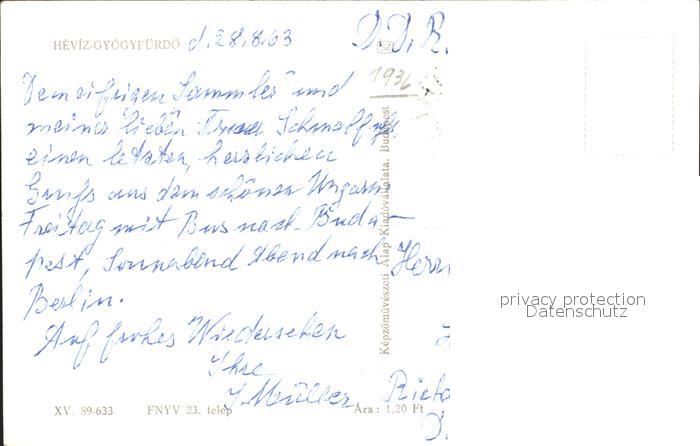 HÉVÍZ-GYÓGYFÜRDŐ d. 28.8.63
D.D.R.
1936
Dem eifrigen Sammler und
meiner lieben Frau
einen letzten, herzlichen
Gruß aus dem schönen Ungarn
Freitag mit Bus nach Buda-
pest, Sonnabend Abend nach
Berlin.
Auf frohes Wiedersehen
Ihre
J. Müller
Herrn
Képzőművészeti Alap Kiadóvállalata, Budapest
XV. 89-633 FNYV 23. telep Ára: 1,20 Ft
privacy protection
Datenschutz